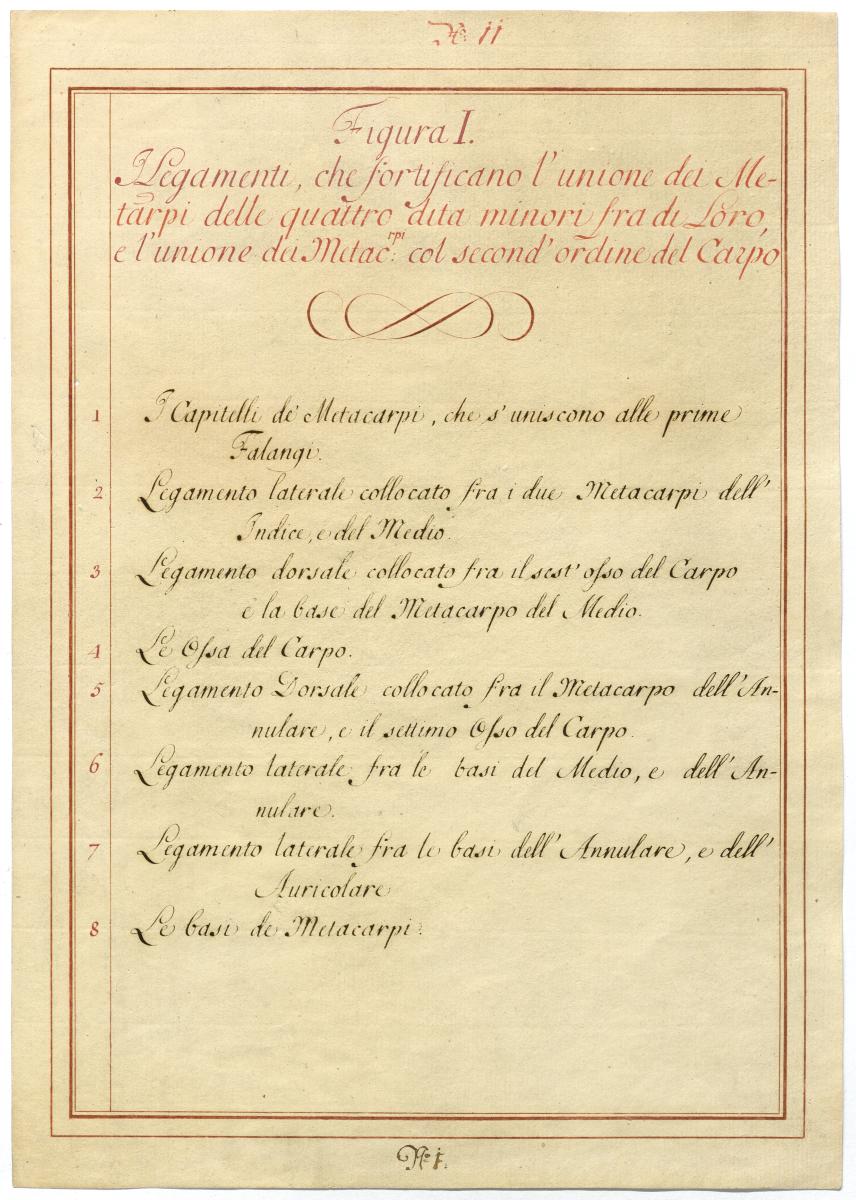 No 11
Figura I.
I Legamenti, che fortificano l'unione dei Me-
tarpi delle quattro dita minori fra di Loro,
e l'unione dei Metac:rpi col second' ordine del Carpo
1 I Capitelli de' Metacarpi, che s' uniscono alle prime
Falangi.
2 Legamento laterale collocato fra i due Metacarpi dell'
Indice, e del Medio.
3 Legamento dorsale collocato fra il sest' osso del Carpo
e la base del Metacarpo del Medio.
4 Le Ossa del Carpo.
5 Legamento Dorsale collocato fra il Metacarpo dell' An-
nulare, e il settimo Osso del Carpo.
6 Legamento laterale fra le basi del Medio, e dell' An-
nulare.
7 Legamento laterale fra le basi dell' Annulare, e dell'
Auricolare
8 Le basi de Metacarpi.
No 1.